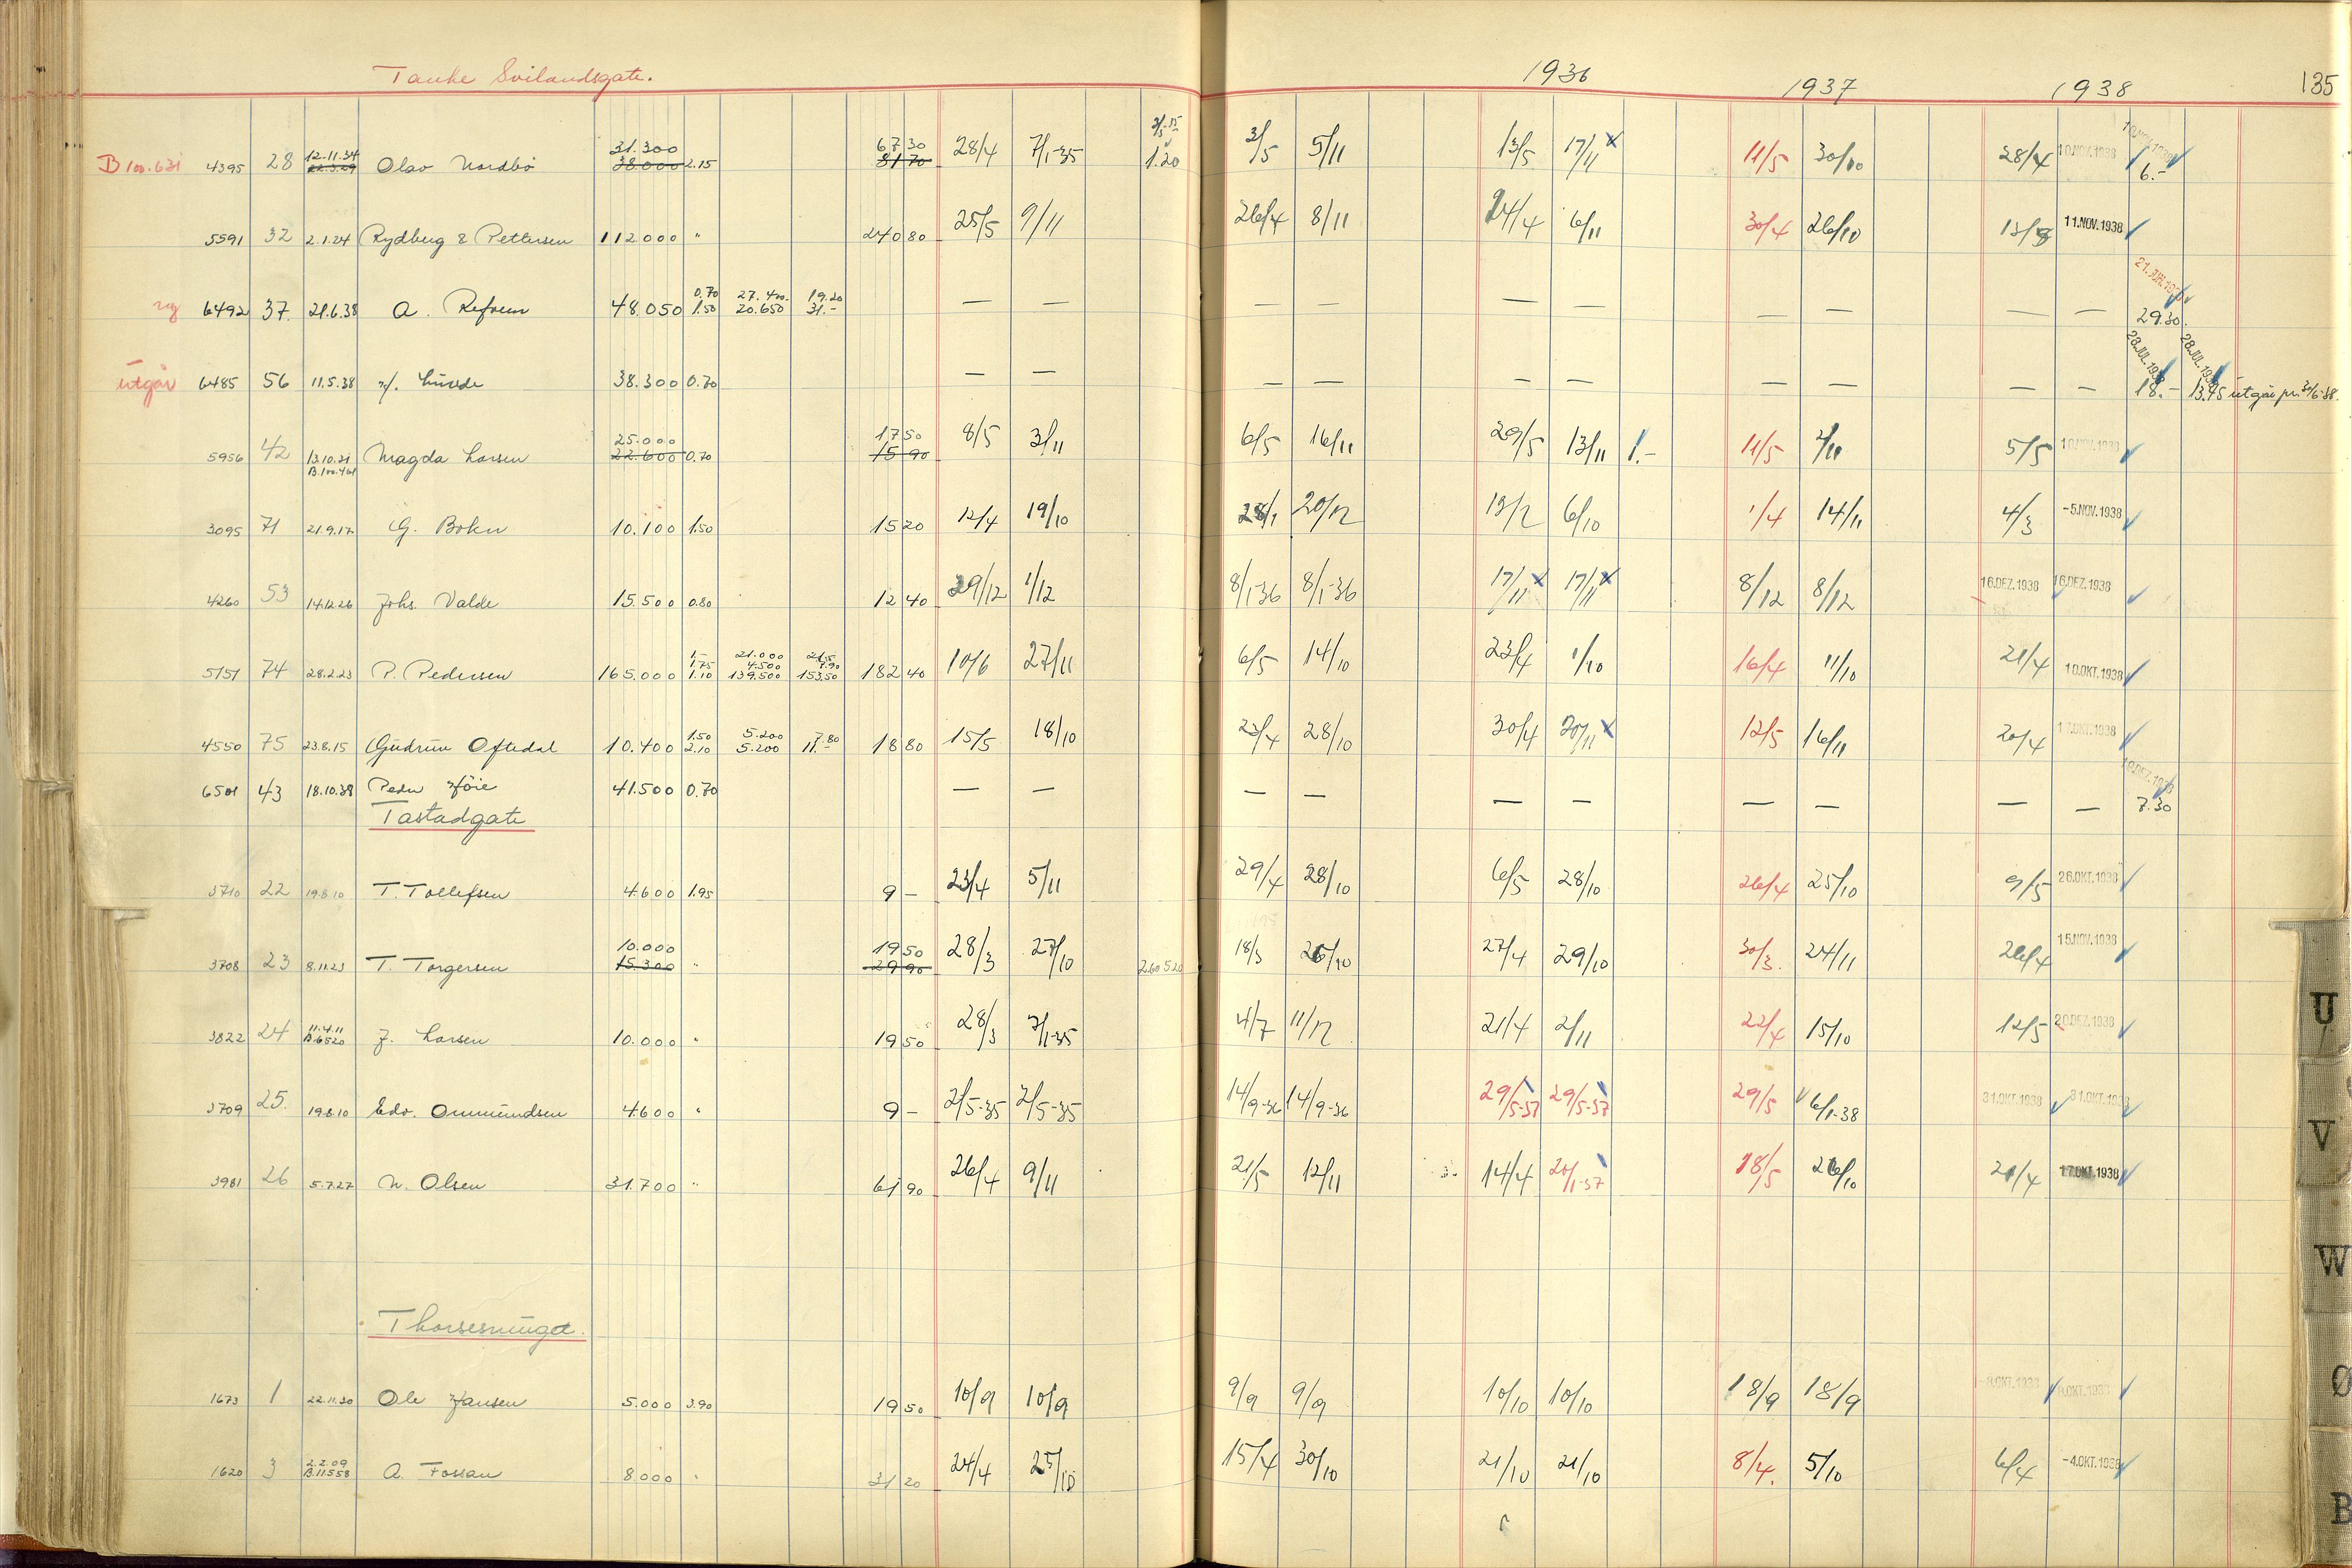 Tanke Svilandsgate. 1936 1937 1938 135
31.300 67 30 2/5-15
B 100.631 4395 28 12.11.34 22.3.29 Olav Nordbö 38.000 2.15 81 70 28/4 7/1-35 1.20 3/5 5/11 13/5 17/11 x 11/5 30/10 28/4 10.NOV.1938 10.NOV.1938 6.-
5591 32 2.1.24 Rydberg & Pettersen 112000 " 240 80 25/5 9/11 26/4 8/11 24/4 6/11 30/4 26/10 13/8 11.NOV.1938
0.70 27.400 19.20 21.JUN.1938
ny 6492 37 21.6.38 A. Refvem 48.050 1.50 20.650 31.- — — — — — — — — — — 29.30
28.JUL.1938 28.JUL.1938
utgår 6485 56 11.5.38 38.300 0.70 — — — — — — — — — — 18.- 13.45 utgår pr. 30/6-38.
25.000 17 50
5956 42 13.10.21 B.100.461 Magda Larsen 22.600 0.70 15 90 8/5 3/11 6/5 16/11 29/5 13/11 1.- 11/5 2/11 5/5 10.NOV.1938
3095 71 21.9.17 G. Bokn 10.100 1.50 15 20 12/4 19/10 28/1 20/12 13/2 6/10 1/4 14/11 4/3 -5.NOV.1938
4260 53 14.12.26 Johs. Valde 15.500 0.80 12 40 29/12 1/12 8/1-36 8/1-36 17/11 x 17/11 x 8/12 8/12 16.DEZ.1938 16.DEZ.1938
1.- 21.000 21.-
1.75 4.500 7.90
5151 74 28.2.23 P. Pedersen 165.000 1.10 139.500 153.50 182 40 10/6 27/11 6/5 14/10 23/4 1/10 16/4 11/10 21/4 10.OKT.1938
1.50 5.200 7.80
4550 75 23.8.15 Gudrun Oftedal 10.400 2.10 5.200 11.- 18 80 15/5 18/10 23/4 28/10 30/4 20/11 x 12/5 16/11 20/4 17.OKT.1938
6501 43 18.10.38 Peder Höie 41.500 0.70 — — — — — — — — — — 10.DEZ.1938 7.30
Tastadgate
3710 22 19.8.10 T. Tollefsen 4.600 1.95 9 - 23/4 5/11 29/4 28/10 6/5 28/10 26/4 25/10 9/5 26.OKT.1938
10.000 19 50
3708 23 8.11.23 T. Torgersen 15.300 " 29 90 28/3 27/10 2.60 5.20 18/3 26/10 27/4 29/10 30/3. 24/11 26/4 15.NOV.1938
3822 24 11.4.11 B.6520 J. Larsen 10.000 " 19 50 28/3 7/1-35 4/7 11/12 21/4 2/11 22/4 15/10 12/5 20.DEZ.1938
3709 25. 19.8.10 Edv. Ommundsen 4.600 " 9 - 2/5-35 2/5-35 14/9-36 14/9-36 29/5-37 29/5-37 29/5 6/1-38 31.OKT.1938 31.OKT.1938
3981 26 5.7.27 N. Olsen 31.700 " 61 90 26/4 9/11 21/5 12/11 3.- 14/4 20/1-37 18/5 26/10 21/4 17.OKT.1938
Thorsesmuget.
1673 1 22.11.30 Ole Hansen 5.000 3.90 19 50 10/9 10/9 9/9 9/9 10/10 10/10 18/9 18/9 -8.OKT.1938 8.OKT.1938
1620 3 2.2.09 B.11558 A. Fossan 8.000 " 31 20 24/4 25/10 15/4 30/10 21/10 21/10 8/4. 5/10 6/4 -4.OKT.1938
U
V
W
Ø
B